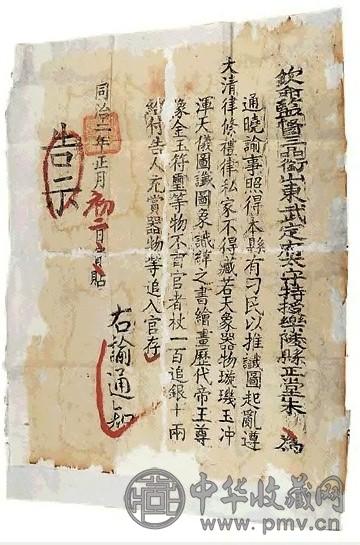 欽命監督三品銜山東武定守特授樂陵縣正堂朱 為
通曉諭事照得本縣有刁民以推讖圖起亂遵
大清律條禮律私家不得藏若天象器物璇璣玉冲
渾天儀圖讖圖象讖緯之書繪畫歷代帝王尊
象金玉符璽等物不首官者杖一百追銀十兩
給付告人充賞器物等追入官存
右諭通知
同治二年正月初二日貼
告示
中华收藏网
www.pmv.cn